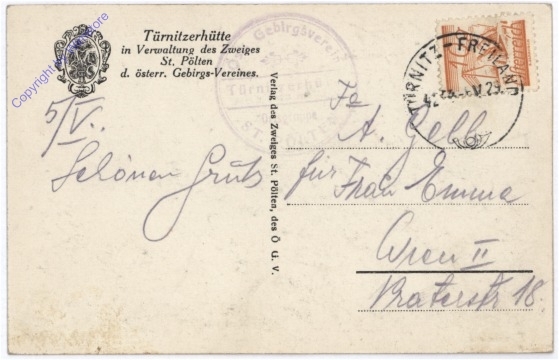 Copyright
Store
Türnitzerhütte
in Verwaltung des Zweiges
St. Pölten
d. österr. Gebirgs-Vereines.
Gebirgsverein
ST. PÖLTEN
TÜRNITZ-FREILAND
Verlag des Zweiges St. Pölten, des Ö G. V.
5/V.
Schönen Gruß
A. Gell
für Frau Emma
Wien II
Praterstr 18.